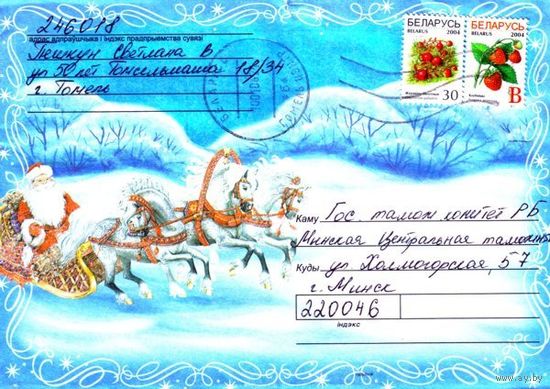 246018
адрас адпраўшчыка і індэкс прадпрыемства сувязі
Пешкун Светлана В.
ул 50 лет Гомсельмаша 18/34
г. Гомель
БЕЛАРУСЬ
BELARUS 2004
30
БЕЛАРУСЬ
BELARUS 2004
B
Каму Гос тамож комитет РБ
Минская Центральная таможня
Куды ул Холмогорская, 57
г. Минск
220046
індэкс
www.ay.by